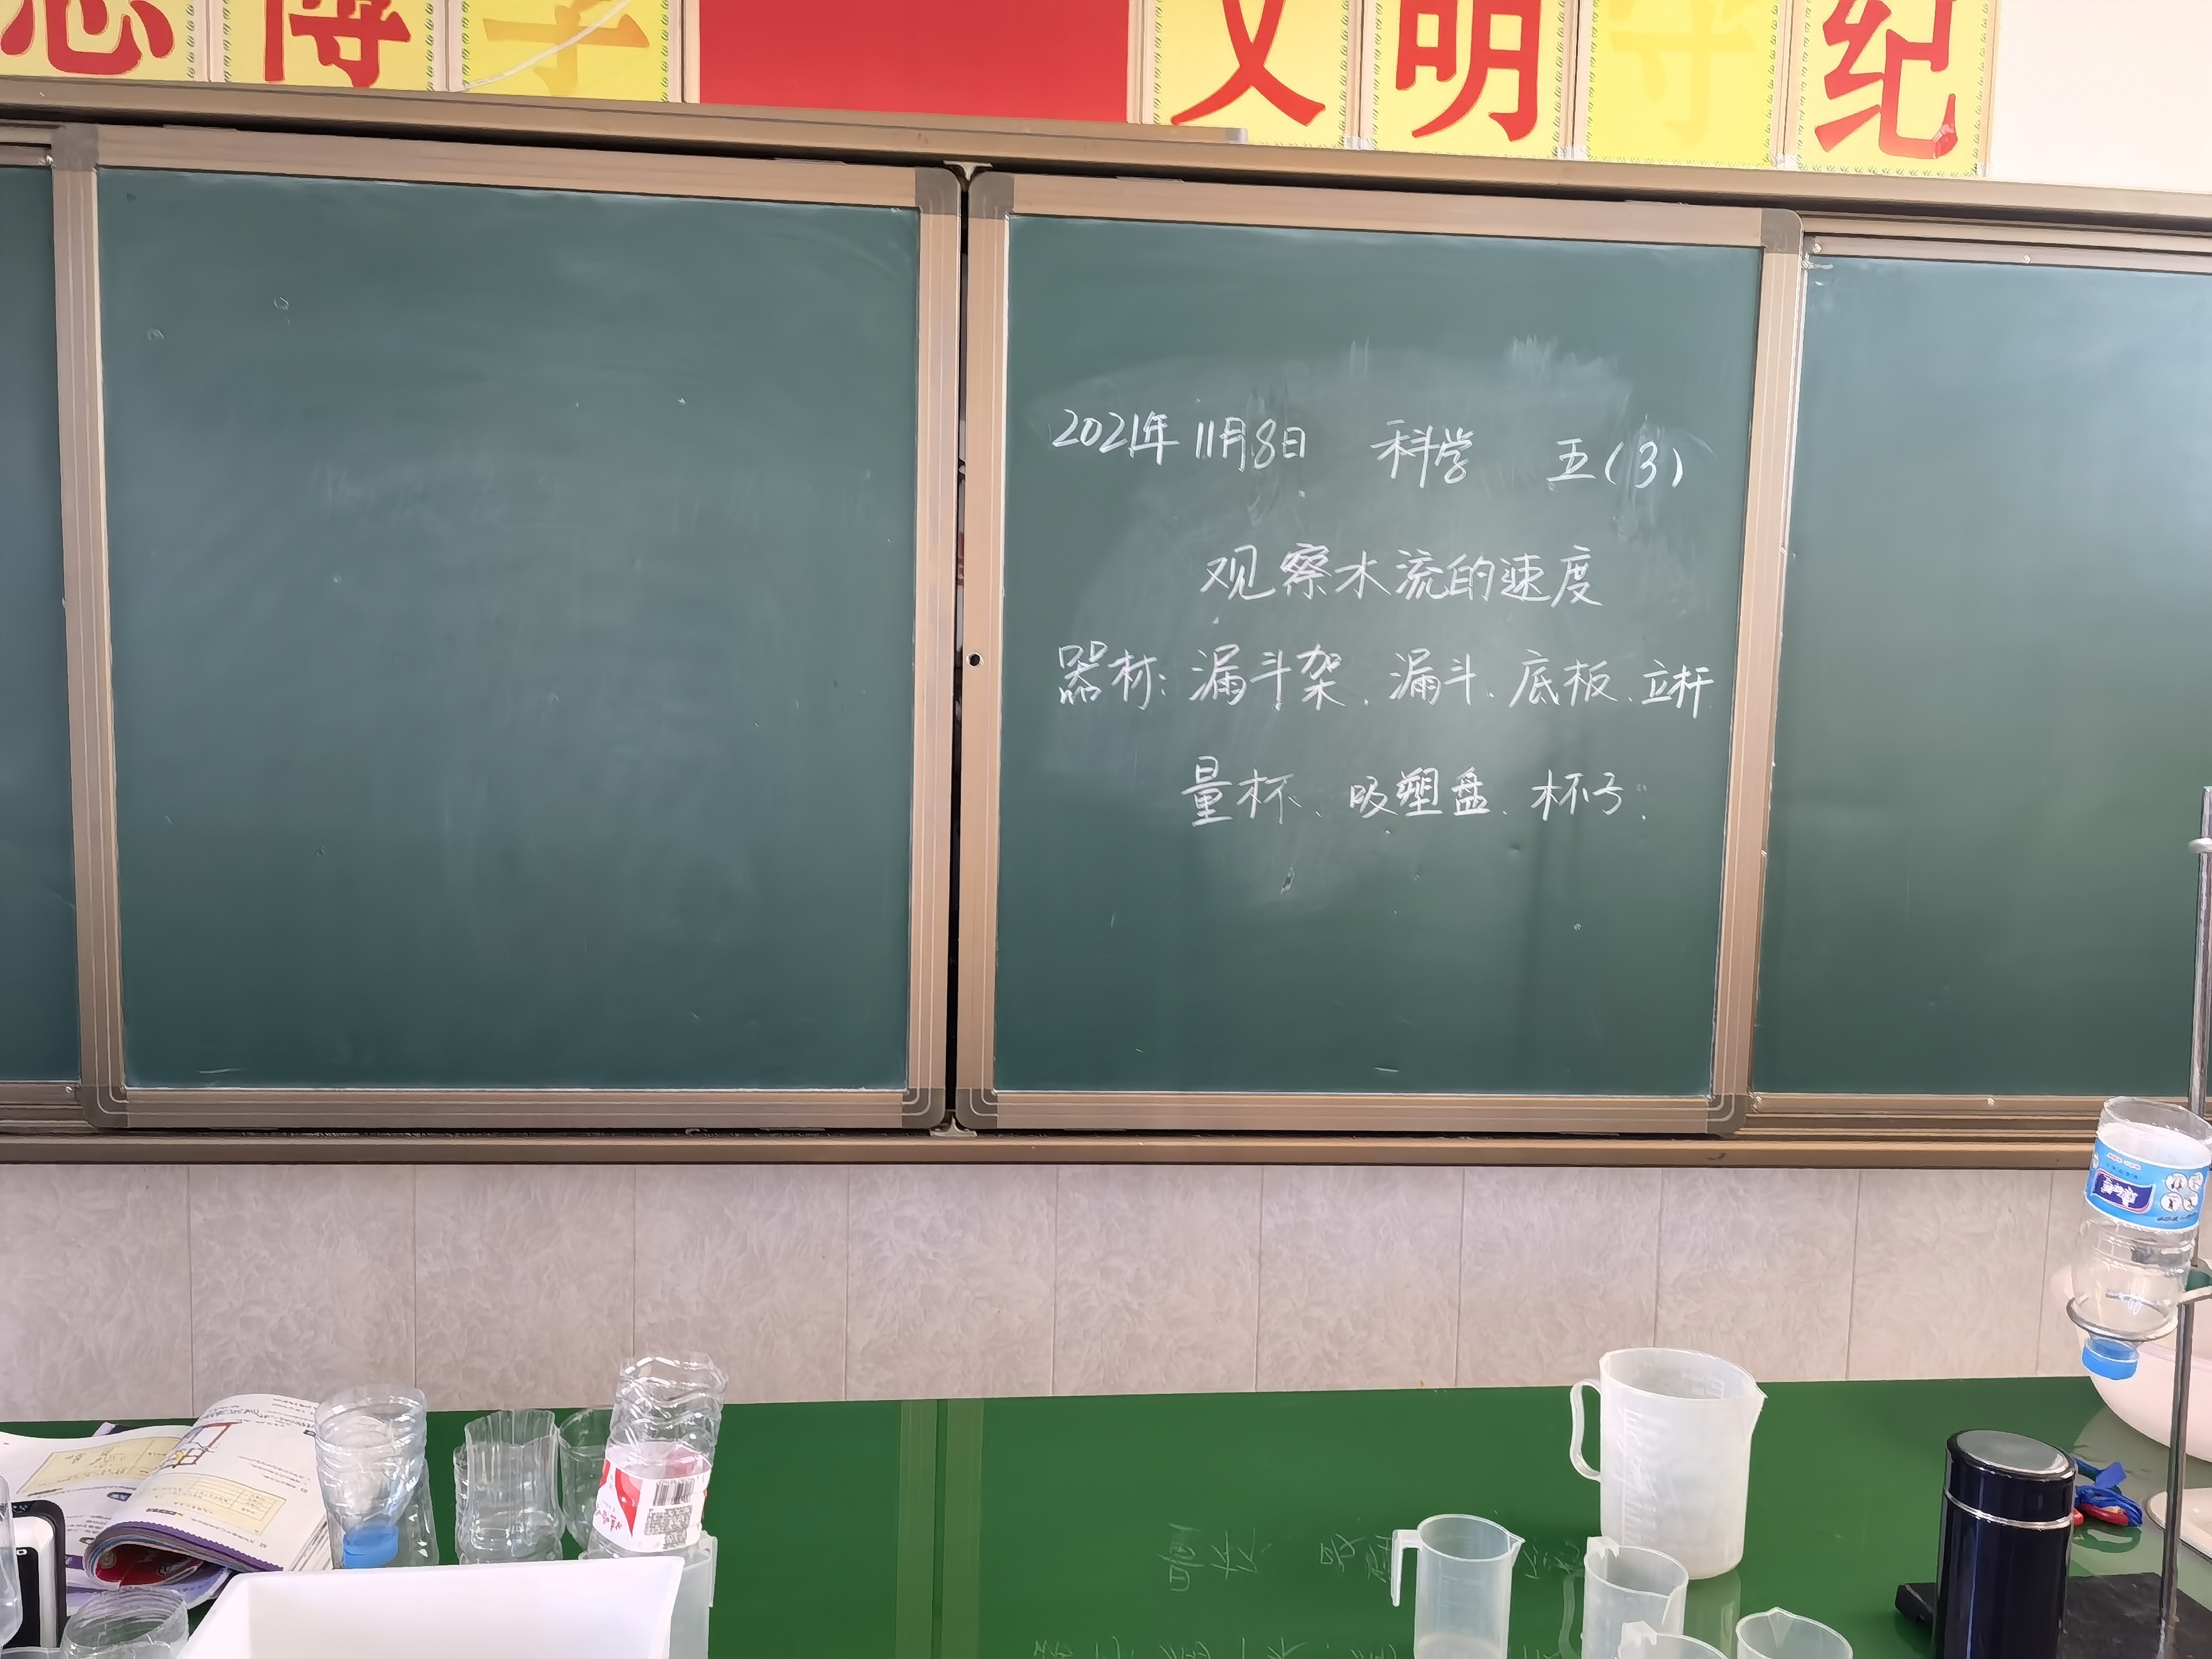 文明守纪
2021年11月8日 科学 五(3)
观察水流的速度
器材:漏斗架、漏斗、底板、立杆
量杯、吸塑盘、杯子.